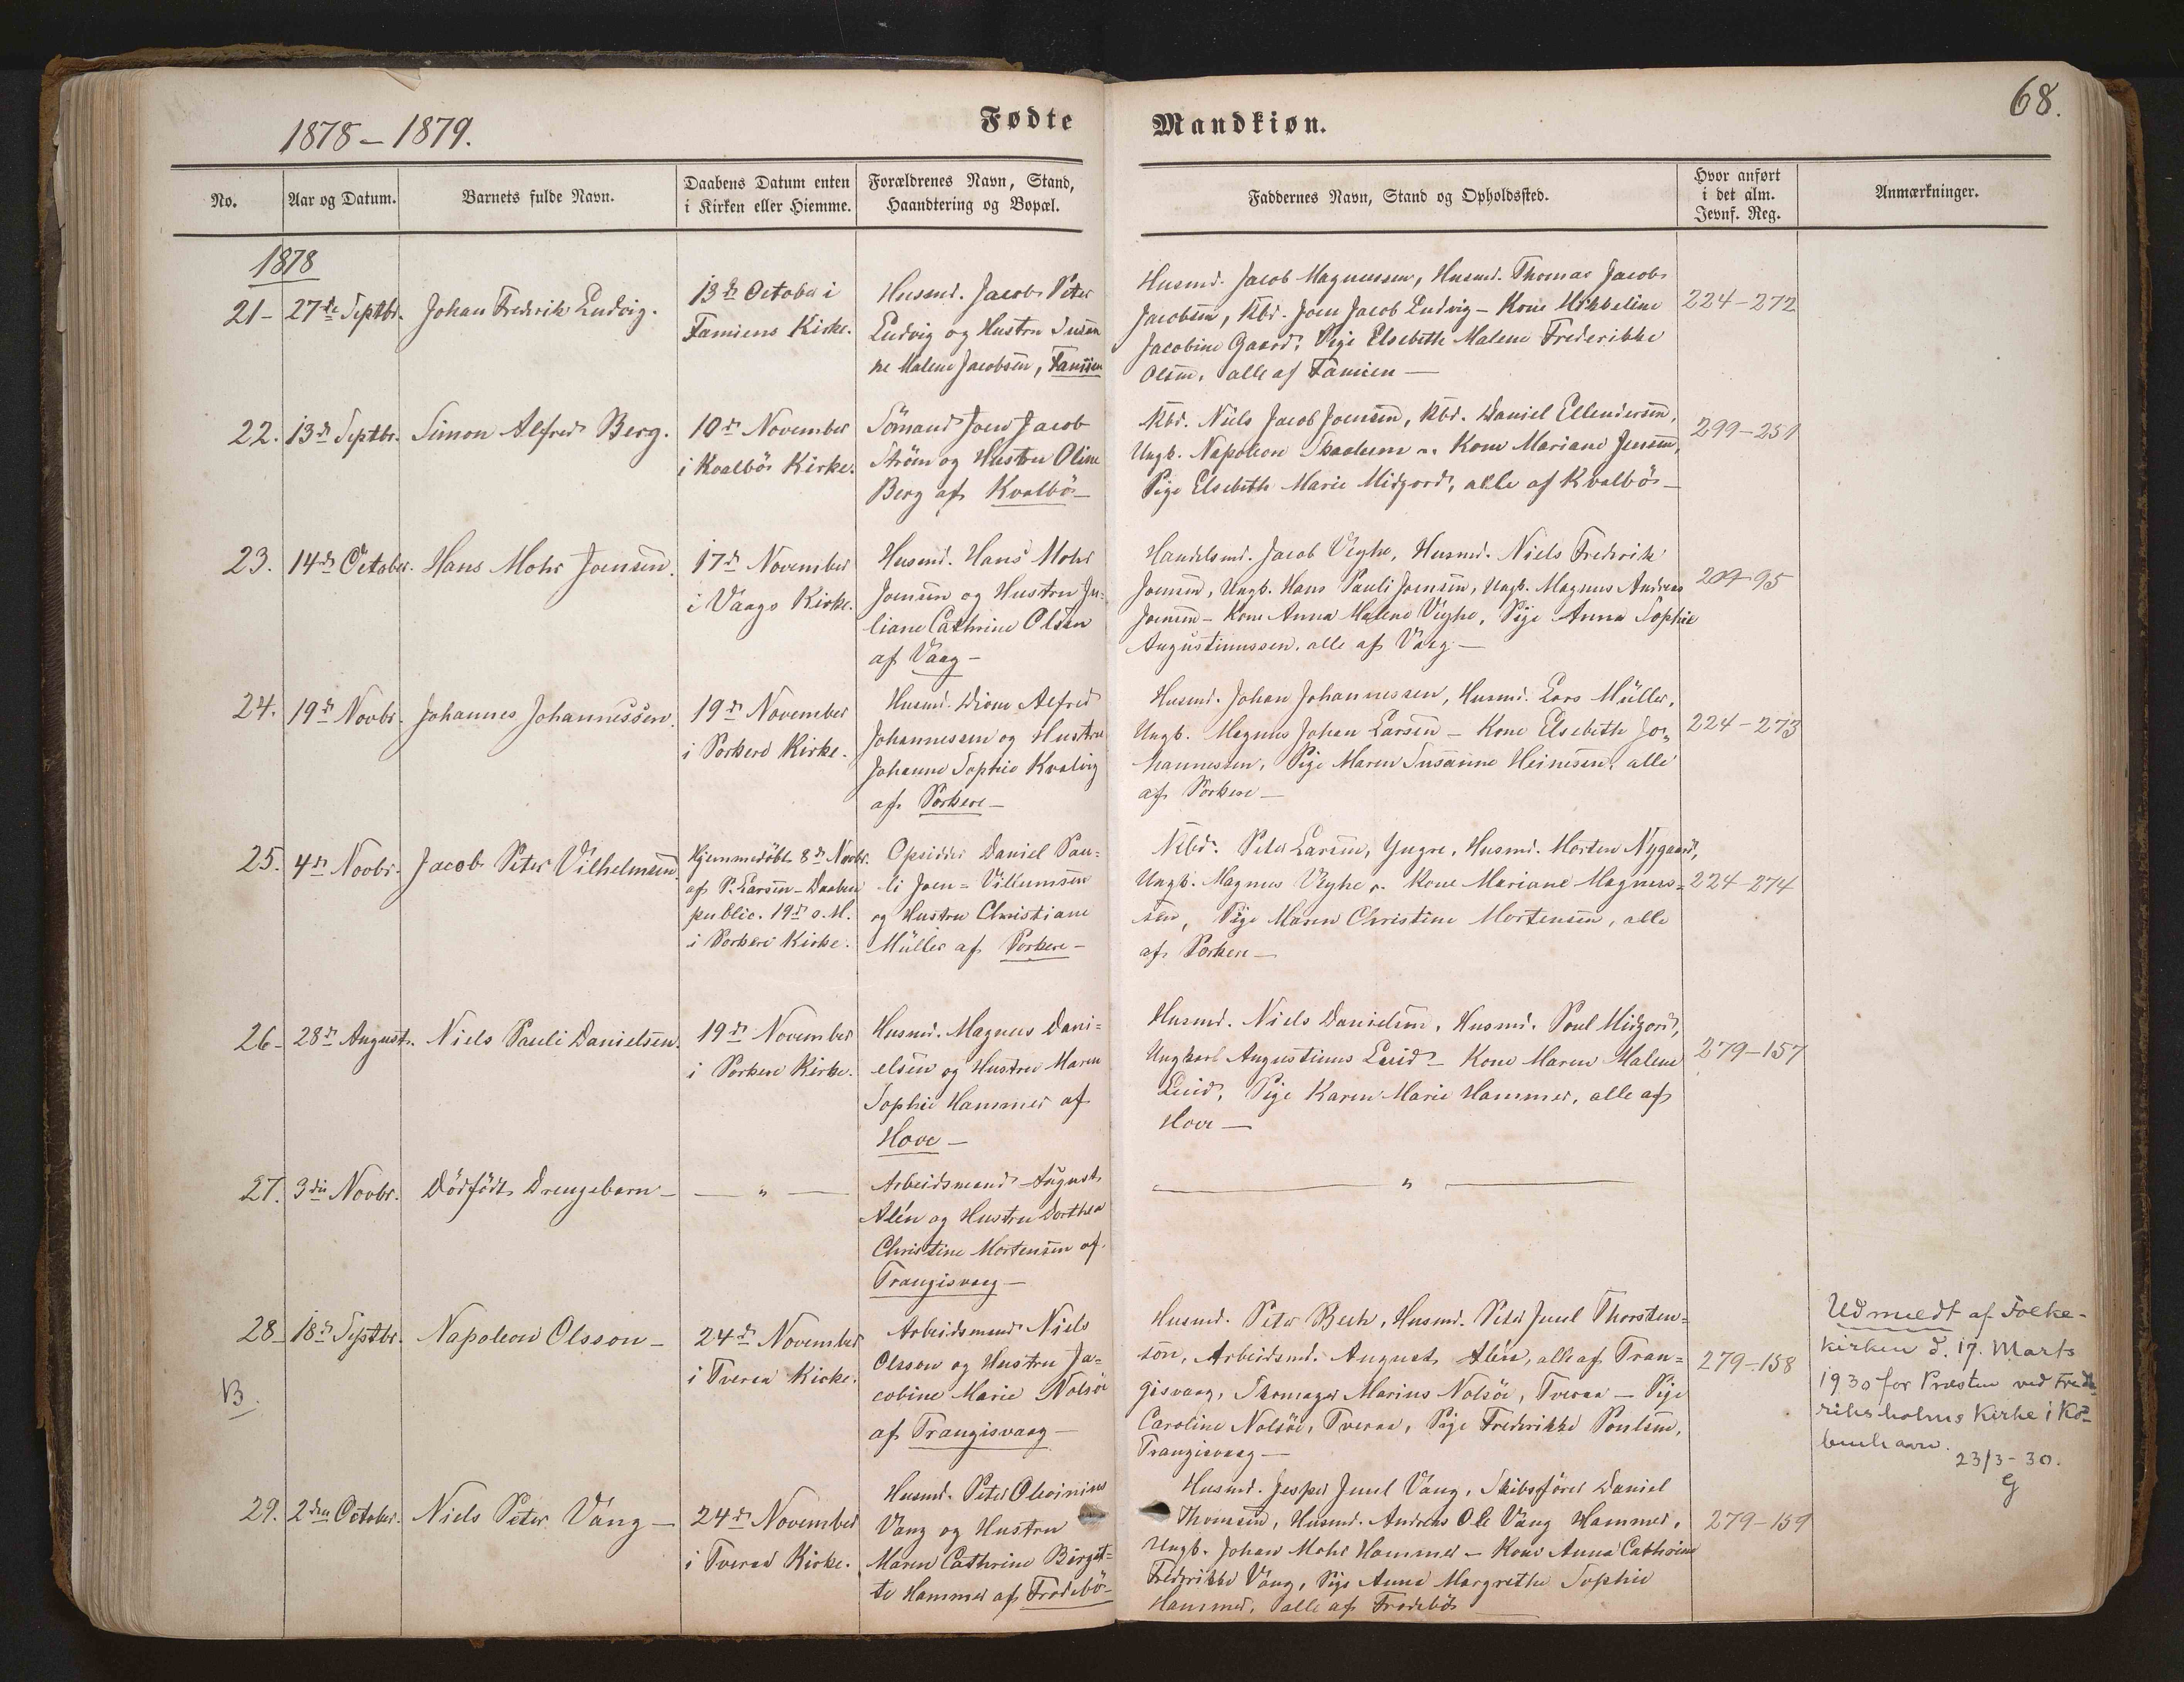 1878 - 1879.
Fødte
Mandkiøn.
68.
No.
Aar og Datum.
Barnets fulde Navn.
Daabens Datum enten
i Kirken eller Hiemme.
Forældrenes Navn, Stand,
Haandtering og Bopæl.
Faddernes Navn, Stand og Opholdssted.
Hvor anført
i det alm.
Jevnf. Reg.
Anmærkninger.
1878
21-
27de Septbr.
Johan Fredrik Ludvig.
13de October i
Famiens Kirke.
Husmd. Jacob Peter
Ludvig og Hustru Susan
ne Malene Jacobsen, Famien
Husmd. Jacob Magnussen, Husmd. Thomas Jacob
Jacobsen, Kbd. Joen Jacob Ludvig - Kone Mikkeline
Jacobine Gaard, Pige Elsebeth Malene Frederikke
Olsen, alle af Famien -
224-272
22.
13de Septbr.
Simon Alfred Berg.
10de November
i Kvalbö Kirke.
Sömand Joen Jacob
Ström og Hustru Oline
Berg af Kvalbö -
Kbd. Niels Jacob Joensen, Kbd. Daniel Ellendersen,
Ungk. Napoleon Skaalum - Kone Mariane Jensen,
Pige Elsebeth Marie Midgord, alle af Kvalbö -
299-251
23.
14de October.
Hans Mohr Joensen.
17de November
i Vaags Kirke.
Husmd. Hans Mohr
Joensen og Hustru Ju=
liane Cathrine Olsen
af Vaag -
Handelsmd. Jacob Vighe, Husmd. Niels Frederik
Joensen, Ungk. Hans Pauli Joensen, Ungk. Magnus Andreas
Joensen - Kone Anna Malene Vighe, Pige Anna Sophie
Augustinussen, alle af Vaag -
209-95
24.
19de Novbr.
Johannes Johannessen.
19de November
i Porkere Kirke.
Husmd. Dione Alfred
Johannessen og Hustru
Johanne Sophie Kvalvig
af Porkere -
Husmd. Johan Johannessen, Husmd. Lars Müller,
Ungk. Magnus Johan Larsen - Kone Elsebeth Jo=
hannessen, Pige Maren Susanne Heinesen, alle
af Porkere -
224-273
25.
4de Novbr.
Jacob Peter Vilhelmsen.
Hjemmedöbt 8de Novbr.
af P. Larsen - Daaben
public. 19de s. M.
i Porkere Kirke.
Opsidder Daniel Pau=
li Joen= Villumsen
og Hustru Christiane
Müller af Porkere -
Kbd. Peter Larsen, Yngre, Husmd. Morten Nygaard,
Ungk. Magnus Vighe - Kone Mariane Magnus=
sen, Pige Maren Christine Mortensen, alle
af Porkere -
224-274
26-
28de August.
Niels Pauli Danielsen.
19de November
i Porkere Kirke.
Husmd. Magnus Dani=
elsen og Hustru Maren
Sophie Hammer af
Hove -
Husmd. Niels Danielsen, Husmd. Poul Midgord,
Ungkarl Augustinus Luid - Kone Maren Malene
Luid, Pige Karen Marie Hammer, alle af
Hove -
279-157
27.
3die Novbr.
Dödfödt Drengebarn -
- " -
Arbeidsmand August
Alén og Hustru Dorthea
Christine Mortensen af
Trangisvaag -
- " -
28-
18de Septbr.
Napoleon Olsson -
24de November
i Tveraa Kirke.
Arbeidsmand Niels
Olsson og Hustru Ja=
cobine Marie Nolsöe
af Trangisvaag -
Husmd. Peter Bech, Husmd. Peter Juul Thorsten=
sön, Arbeidsmd. August Alén, alle af Tran=
gisvaag, Skomager Marius Nolsöe, Tveraa - Pige
Caroline Nolsöe, Tveraa, Pige Frederikke Poulsen,
Trangisvaag -
279-158
Udmeldt af Folke-
kirken d. 17. Marts
1930 for Præsten ved Fred=
riksholms Kirke i Kö=
benhavn.
23/3-30.
G
B.
29.
2den October.
Niels Peter Vang -
24de November
i Tveraa Kirke.
Husmd. Peter Olevinius
Vang og Hustru
Maren Cathrine Birgit=
te Hammer af Frodebö -
Husmd. Jesper Juul Vang, Skibsförer Daniel
Thomsen, Husmd. Andreas Ole Vang Hammer,
Ungk. Johan Mohr Hammer - Kone Anna Cathrine
Frederikke Vang, Pige Anna Margrethe Sophie
Hammer, alle af Frodebö
279-159